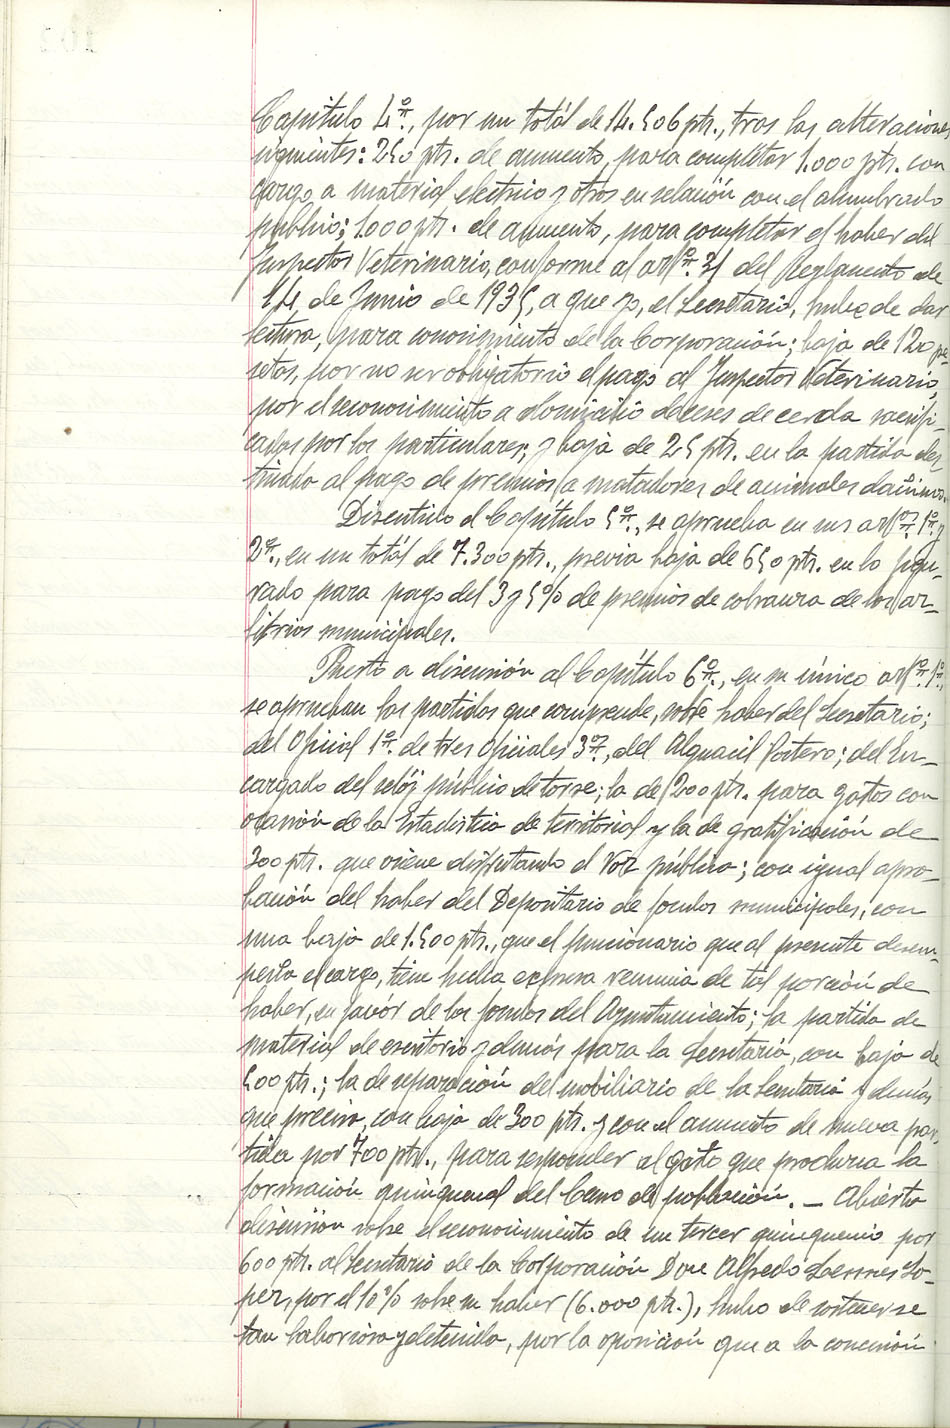 Capítulo 4º., por un totál de 14.506 pts., tras las alteraciones
siguientes: 250 pts. de aumento, para completar 1.000 pts. con
cargo a material electrico y otros en relación con el alumbrado
publico; 1.000 pts. de aumento, para completar el haber del
Inspector Veterinario, conforme al artº. 21 del Reglamento de
14 de Junio de 1935, a que yo, el Secretario, hube de dar
lectura, para conocimiento de la Corporación; baja de 120 pe-
setas, por no ser obligatorio el pago al Inspector Veterinario,
por el reconocimiento a domicilio de reses de cerda sacrifi-
cadas por los particulares; y baja de 25 pts. en la partida des-
tinada al pago de premios a matadores de animales dañinos.
Discutido el Capítulo 5º., se aprueba en sus artos. 1º. y
2º., en un totál de 7.300 pts., previa baja de 650 pts. en lo figu-
rado para pago del 3 y 5% de premios de cobranza de los ar-
bitrios municipales.
Puesto a discusión al Capítulo 6º., en su único artº. 1º.,
se aprueban las partidas que comprende, sobre haber del Secretario;
del Oficial 1º. de tres Oficiales 3os., del Alguacil Portero; del En-
cargado del reloj público de torre; la de 200 pts. para gastos con
ocasión de la Estadistica de territorial y la de gratificación de
300 pts. que viene disfrutando el Voz pública; con igual apro-
bación del haber del Depositario de fondos municipales, con
una baja de 1.500 pts., que el funcionario que al presente desem-
peña el cargo, tiene hecha expresa renuncia de tál porción de
haber, en favór de los fondos del Ayuntamiento; la partida de
material de escritorio y demás para la Secretaria, con baja de
500 pts.; la de reparación del mobiliario de la Secretaria y demás
que precise, con baja de 300 pts. y con el aumento de nueva par-
tida por 700 pts., para responder al gasto que produzca la
formación quinquenal del Censo de población. — Abierta
discusión sobre el reconocimiento de un tercer quinquenio por
600 pts. al Secretario de la Corporación Don Alfredo Lo-
pez, por el 10% sobre su haber (6.000 pts.), hubo de sostenerse
tan laboriosa y detenida, por la oposición que a la concesión